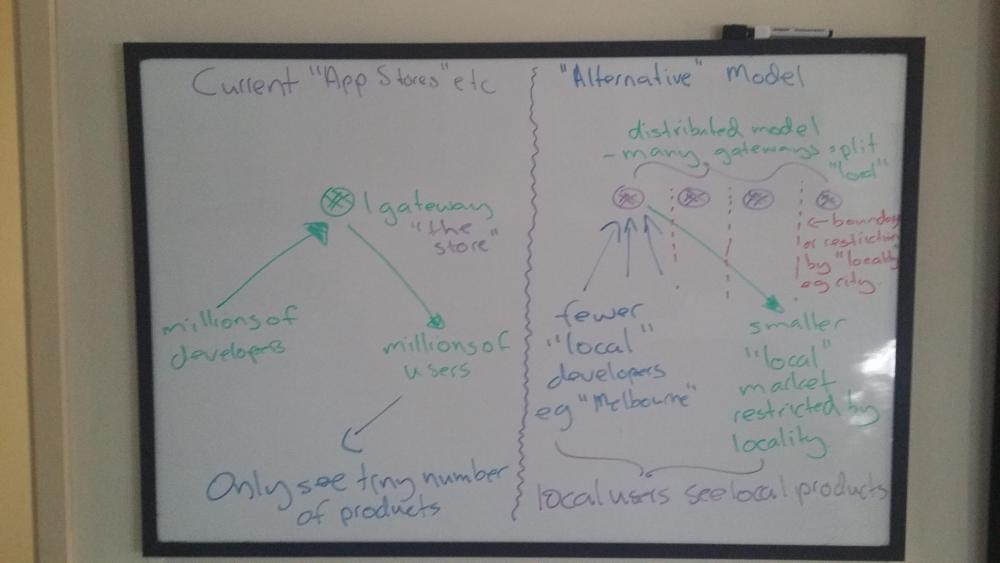 Current "App Stores" etc
1 gateway
"the
store"
millions of
developers
millions of
users
Only see tiny number
of products
"Alternative" Model
distributed model
- many gateways split
"load"
← boundary
or restriction
by "locality
eg city.
fewer
"local"
developers
eg "Melbourne"
smaller
"local"
market
restricted by
locality.
local users see local products